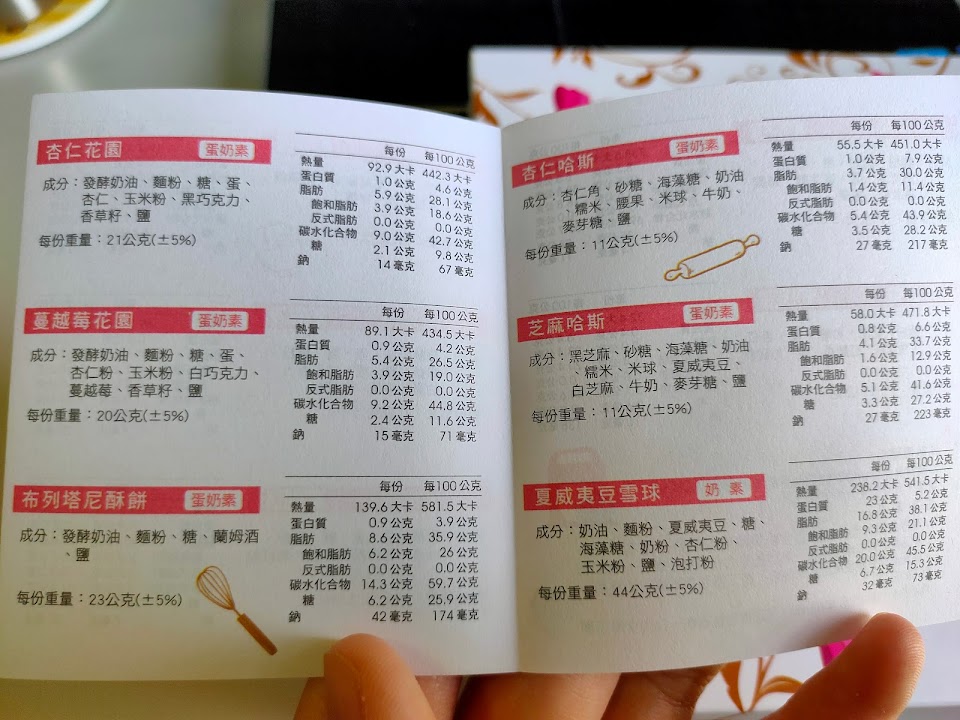 杏仁花園 蛋奶素
成分：發酵奶油、麵粉、糖、蛋、
杏仁、玉米粉、黑巧克力、
香草籽、鹽
每份重量：21公克(±5%)
每份 每100公克
熱量 92.9大卡 442.3大卡
蛋白質 1.0公克 4.6公克
脂肪 5.9公克 28.1公克
飽和脂肪 3.9公克 18.6公克
反式脂肪 0.0公克 0.0公克
碳水化合物 9.0公克 42.7公克
糖 2.1公克 9.8公克
鈉 14毫克 67毫克
蔓越莓花園 蛋奶素
成分：發酵奶油、麵粉、糖、蛋、
杏仁粉、玉米粉、白巧克力、
蔓越莓、香草籽、鹽
每份重量：20公克(±5%)
每份 每100公克
熱量 89.1大卡 434.5大卡
蛋白質 0.9公克 4.2公克
脂肪 5.4公克 26.5公克
飽和脂肪 3.9公克 19.0公克
反式脂肪 0.0公克 0.0公克
碳水化合物 9.2公克 44.8公克
糖 2.4公克 11.6公克
鈉 15毫克 71毫克
布列塔尼酥餅 蛋奶素
成分：發酵奶油、麵粉、糖、蘭姆酒
、鹽
每份重量：23公克(±5%)
每份 每100公克
熱量 139.6大卡 581.5大卡
蛋白質 0.9公克 3.9公克
脂肪 8.6公克 35.9公克
飽和脂肪 6.2公克 26公克
反式脂肪 0.0公克 0.0公克
碳水化合物 14.3公克 59.7公克
糖 6.2公克 25.9公克
鈉 42毫克 174毫克
杏仁哈斯 蛋奶素
成分：杏仁角、砂糖、海藻糖、奶油
、糯米、腰果、米球、牛奶、
麥芽糖、鹽
每份重量：11公克(±5%)
每份 每100公克
熱量 55.5大卡 451.0大卡
蛋白質 1.0公克 7.9公克
脂肪 3.7公克 30.0公克
飽和脂肪 1.4公克 11.4公克
反式脂肪 0.0公克 0.0公克
碳水化合物 5.4公克 43.9公克
糖 3.5公克 28.2公克
鈉 27毫克 217毫克
芝麻哈斯 蛋奶素
成分：黑芝麻、砂糖、海藻糖、奶油
、糯米、米球、夏威夷豆、
白芝麻、牛奶、麥芽糖、鹽
每份重量：11公克(±5%)
每份 每100公克
熱量 58.0大卡 471.8大卡
蛋白質 0.8公克 6.6公克
脂肪 4.1公克 33.7公克
飽和脂肪 1.6公克 12.9公克
反式脂肪 0.0公克 0.0公克
碳水化合物 5.1公克 41.6公克
糖 3.3公克 27.2公克
鈉 27毫克 223毫克
夏威夷豆雪球 奶素
成分：奶油、麵粉、夏威夷豆、糖、
海藻糖、奶粉、杏仁粉、
玉米粉、鹽、泡打粉
每份重量：44公克(±5%)
每份 每100公克
熱量 238.2大卡 541.5大卡
蛋白質 23公克 5.2公克
脂肪 16.8公克 38.1公克
飽和脂肪 9.3公克 21.1公克
反式脂肪 0.0公克 0.0公克
碳水化合物 20.0公克 45.5公克
糖 6.7公克 15.3公克
鈉 32毫克 73毫克